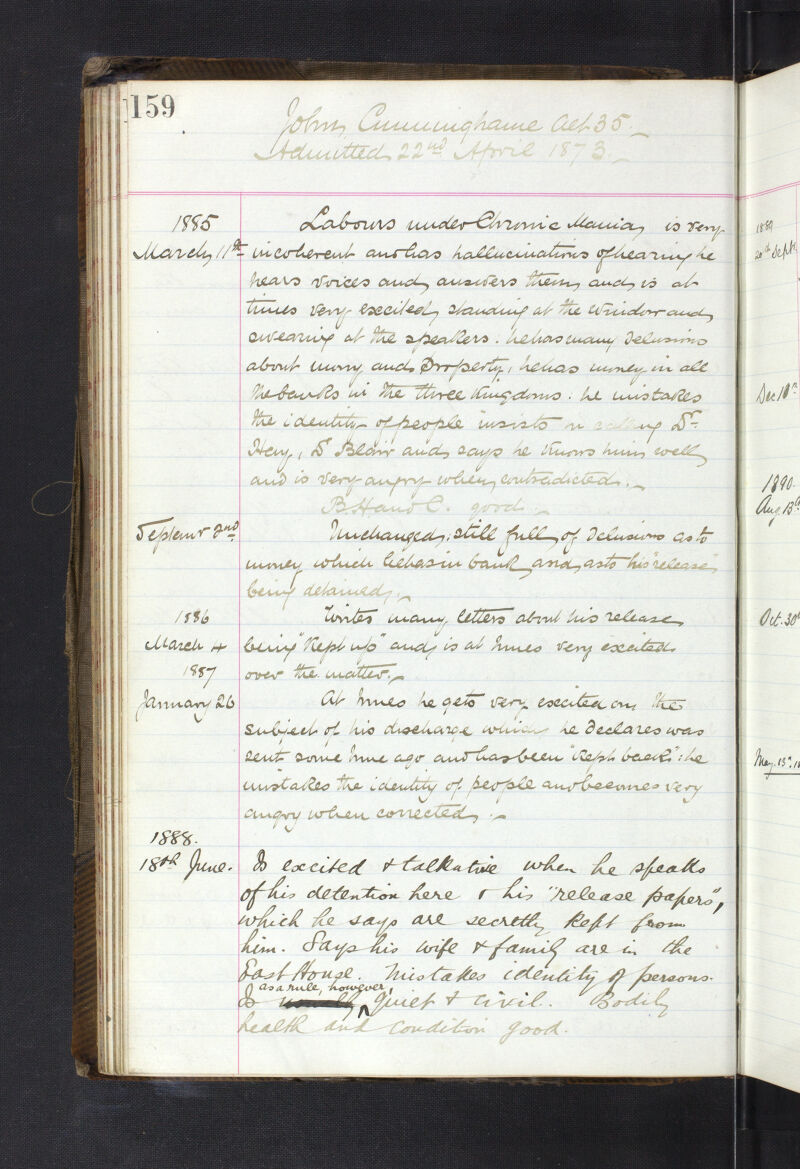 159
John Cunninghame Aet 35.
Admitted 22nd April 1873.
1885
March 11th
Labours under Chronic Mania, is very
incoherent and has hallucinations of hearing he
hears voices and answers them, and is at
times very excited, standing at the window and
swearing at the speakers: he has many delusions
about money and Property, he has money in all
the banks in the three Kingdoms: he mistakes
the identity of people insists on calling Dr.
Dr Blair and says he knows him well
and is very angry when contradicted.
B. H and C. good.
Septemr 2nd
Unchanged, still full of delusions as to
money which he has in bank, and as to his "release"
being detained.
1886
March 4
Writes many letters about his release
being "Kept up" and is at times very excited
over the matter.
1887
January 26
At times he gets very excited on the
subject of his discharge which he declares was
sent some time ago and has been "Kept back": he
mistakes the identity of people and becomes very
angry when corrected.
1888.
18th June.
Is excited & talkative when he speaks
of his detention here & his "release papers",
which he says are secretly kept from
him. Says his wife & family are in the
East House. Mistakes identity of persons.
as a rule, however,
Is usually quiet & civil. Bodily
health and condition good.
1889
20th Sept.
Dec 10th
1890.
Aug. 13th
Oct. 30th
May. 13th